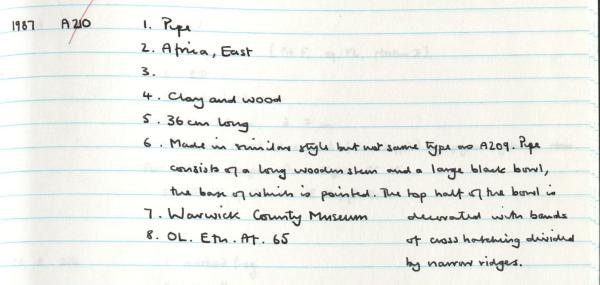 1987 A210 1. Pipe
2. Africa, East
3.
4. Clay and wood
5. 36cm long
6. Made in similar style but not same type as A209. Pipe
consists of a long wooden stem and a large black bowl,
the base of which is pointed. The top half of the bowl is
decorated with bands
of cross hatching divided
by narrow ridges.
7. Warwick County Museum
8. OL. Eth. Af. 65